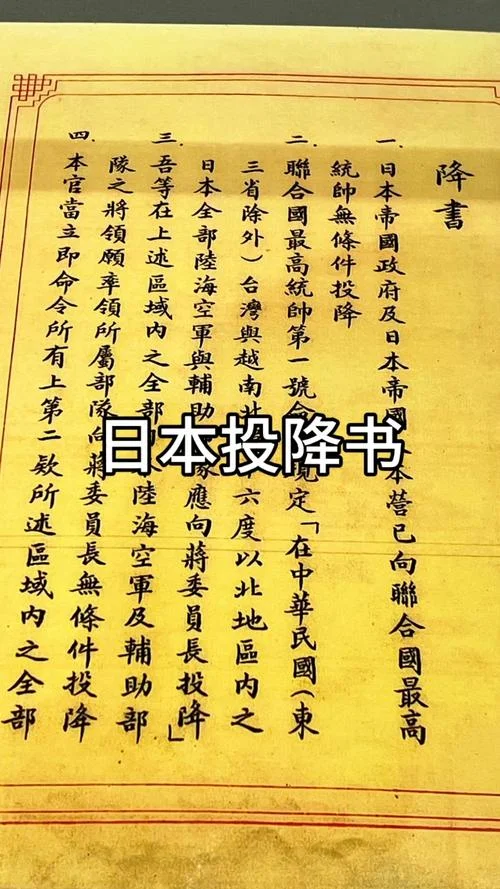 降書
一、日本帝國政府及日本帝國本營已向聯合國最高
統帥無條件投降
二、聯合國最高統帥第一號令規定「在中華民國(東
三省除外)台灣與越南北六度以北地區內之
日本全部陸海空軍與輔助隊應向蔣委員長投降」
三、吾等在上述區域內之全部陸海空軍及輔助部
隊之將領願率領所屬部隊向蔣委員長無條件投降
四、本官當立即命令所有上第二款所述區域內之全部
日本投降书